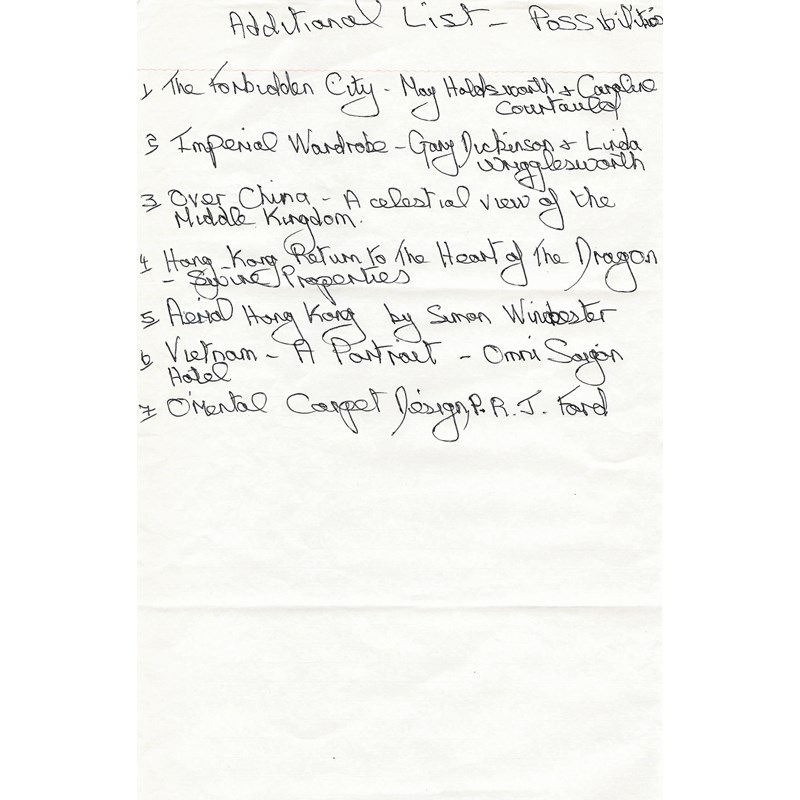 Additional List - Possibilities
1, The Forbidden City - May Holdsworth & Caroline
Courtauld
2, Imperial Wardrobe - Gary Dickinson & Linda
Wrigglesworth
3, Over China - A celestial view of the
Middle Kingdom.
4, Hong Kong Return to The Heart of The Dragon
- Swire Properties
5, Aerial Hong Kong by Simon Winchester
6, Vietnam - A Portrait - Omni Saigon
Hotel
7, Oriental Carpet Design, P. R. J. Ford